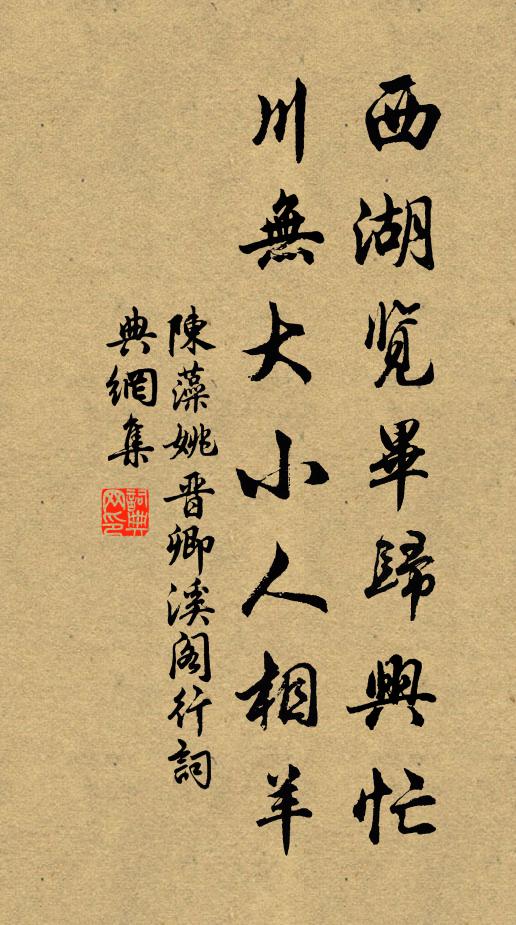 西湖覽畢歸興忙
川無大小人相羊
陳藻姚晋卿溪阁行詞
典網集
詞典
网印